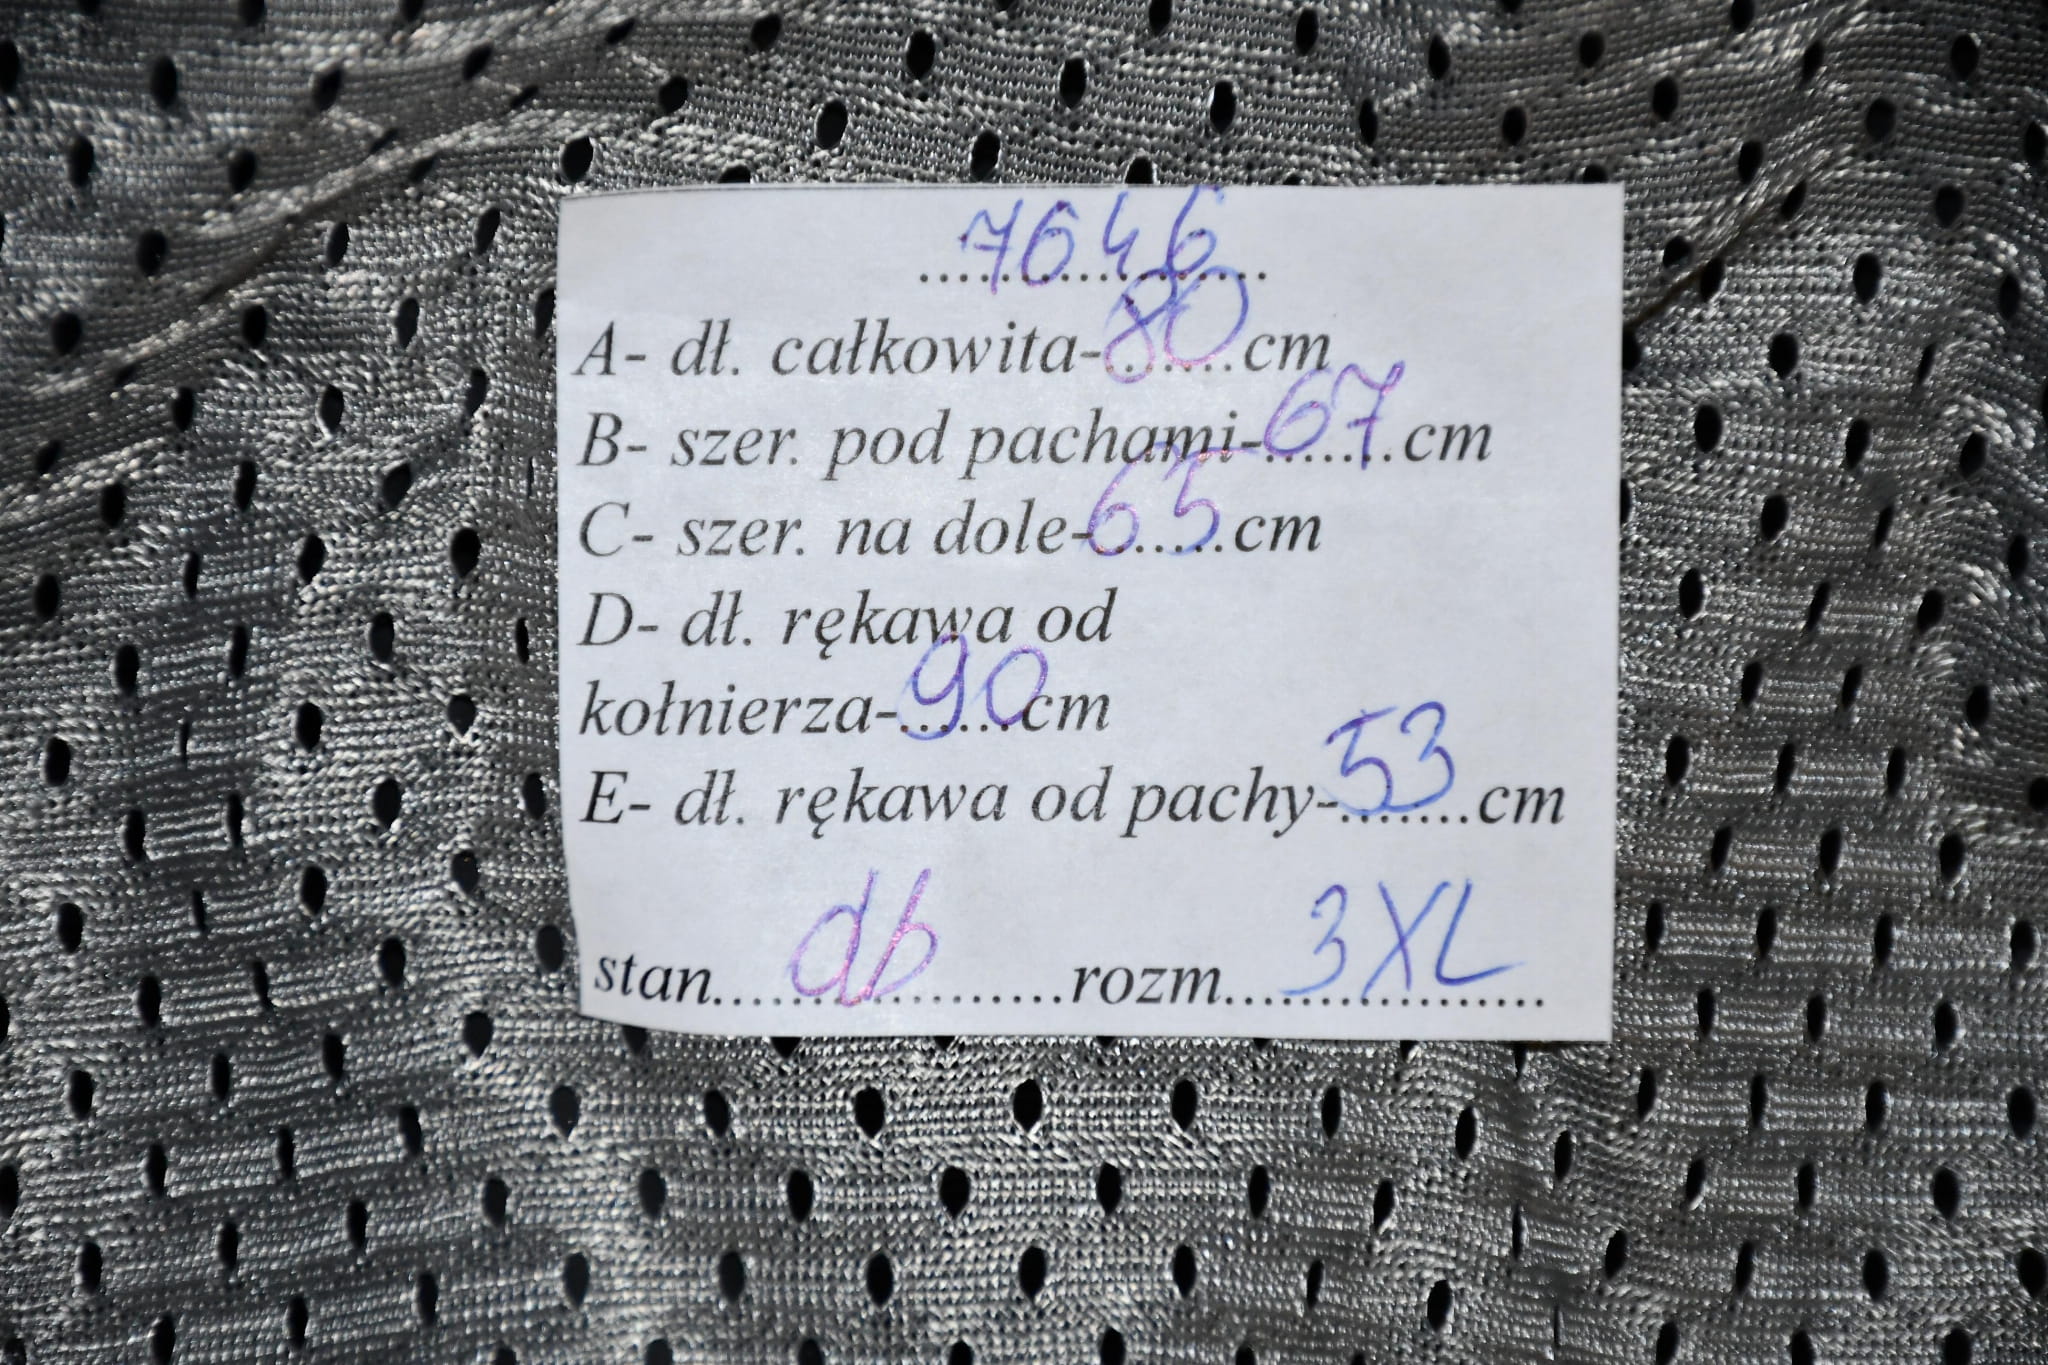 7646
A- dł. całkowita-80cm
B- szer. pod pachami-67cm
C- szer. na dole-65cm
D- dł. rękawa od
kołnierza-90cm
E- dł. rękawa od pachy-53cm
stan....db....rozm....3XL....